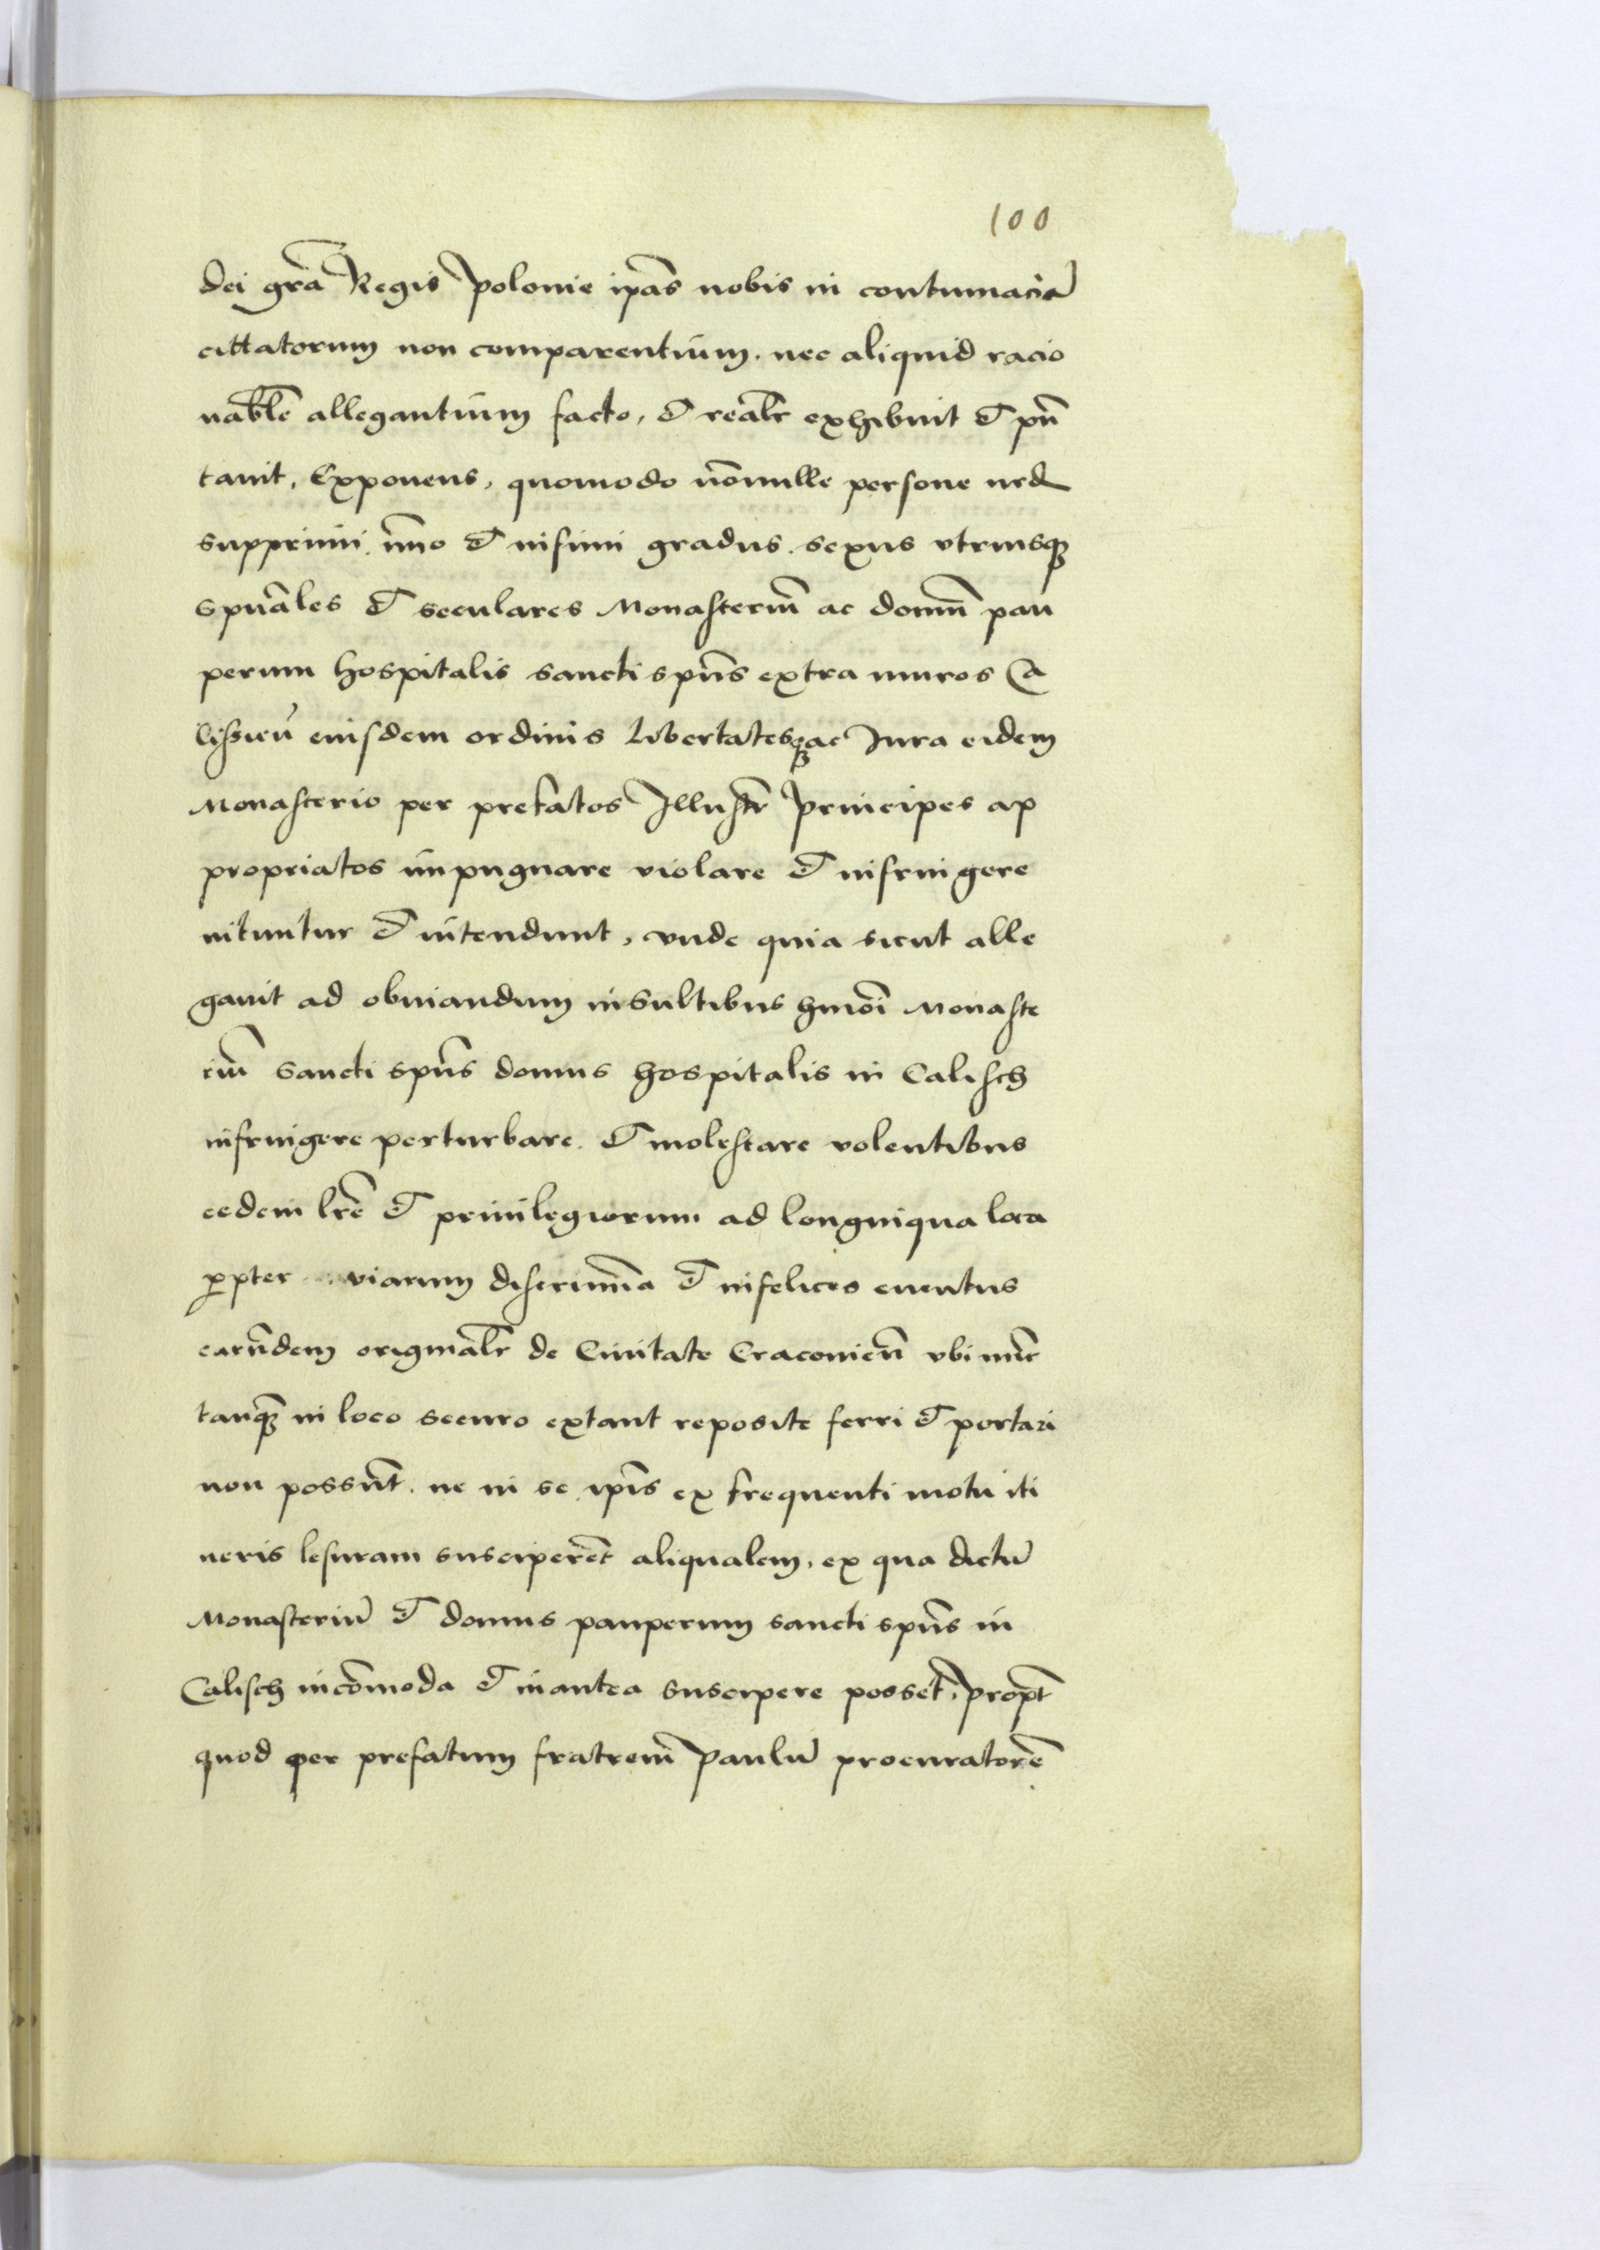 100
dei grã Regis Polonie ip̃as nobis in contumaciã
cittatorum non comparentium. nec aliquid racio
nabłe allegantium facto, et realr̃ exhibuit et pñ
tauit, Exponens, quomodo nõnulle persone ned
supprimi. ĩmo et infimi gradus. sexus vtriusqꝫ
spũales et seculares Monasteriũ ac domũ pau
perum hospitalis sancti spũs extra muros Ca
lissieñ eiusdem ordinis libertatesqꝫ ac Jura eidem
Monasterio per prefatos Illustr̃ Principes ap
propriatos impugnare violare et infringere
nituntur et intendunt, vnde quia sicut alle
gauit ad obuiandum insultibus hmõi Monaste
riũ sancti spũs domus hospitalis in Calisch
infringere perturbare. et molestare volentibus
eedem lrẽ et priuilegiorum ad longinqua loca
ꝓpter viarum discrimĩa et infelices euentus
earũdem originalr̃ de Ciuitate Cracouieñ vbi nũc
tanqꝫ in loco securo extant reposite ferri et portari
non possũt. ne in se ip̃is ex frequenti motu iti
neris lesuram susciperẽt aliqualem, ex qua dictũ
Monasteriũ et domus pauperum sancti spũs in
Calisch incõmoda et inantea suscipere posset, Propt̃
quod per prefatum fratrem̃ Paulũ procuratorẽ